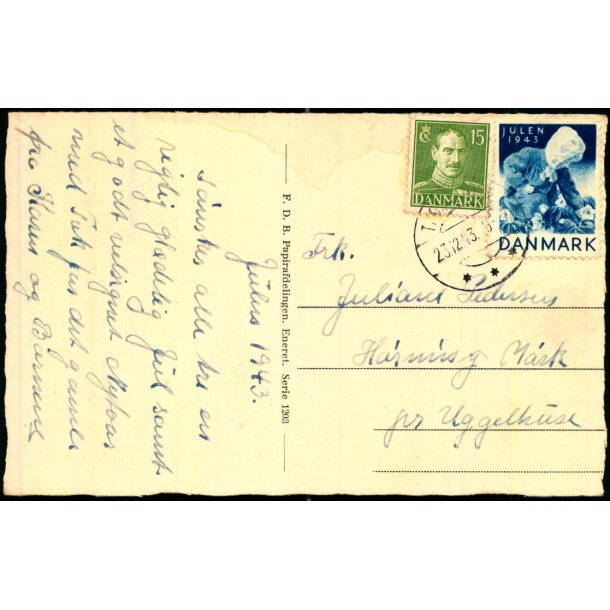 Julen 1943.
ønskes alle tre en
rigtig glædelig Jul samt
et godt velsignet Nytaar
med Tak for det gamle
fra Hans og Børnene
F. D. B. Papirafdelingen. Eneret. Serie 1203
15
DANMARK
JULEN
1943
DANMARK
23.12.43.
Frk.
Juliane Pedersen
Mark
pr Uggelhuse